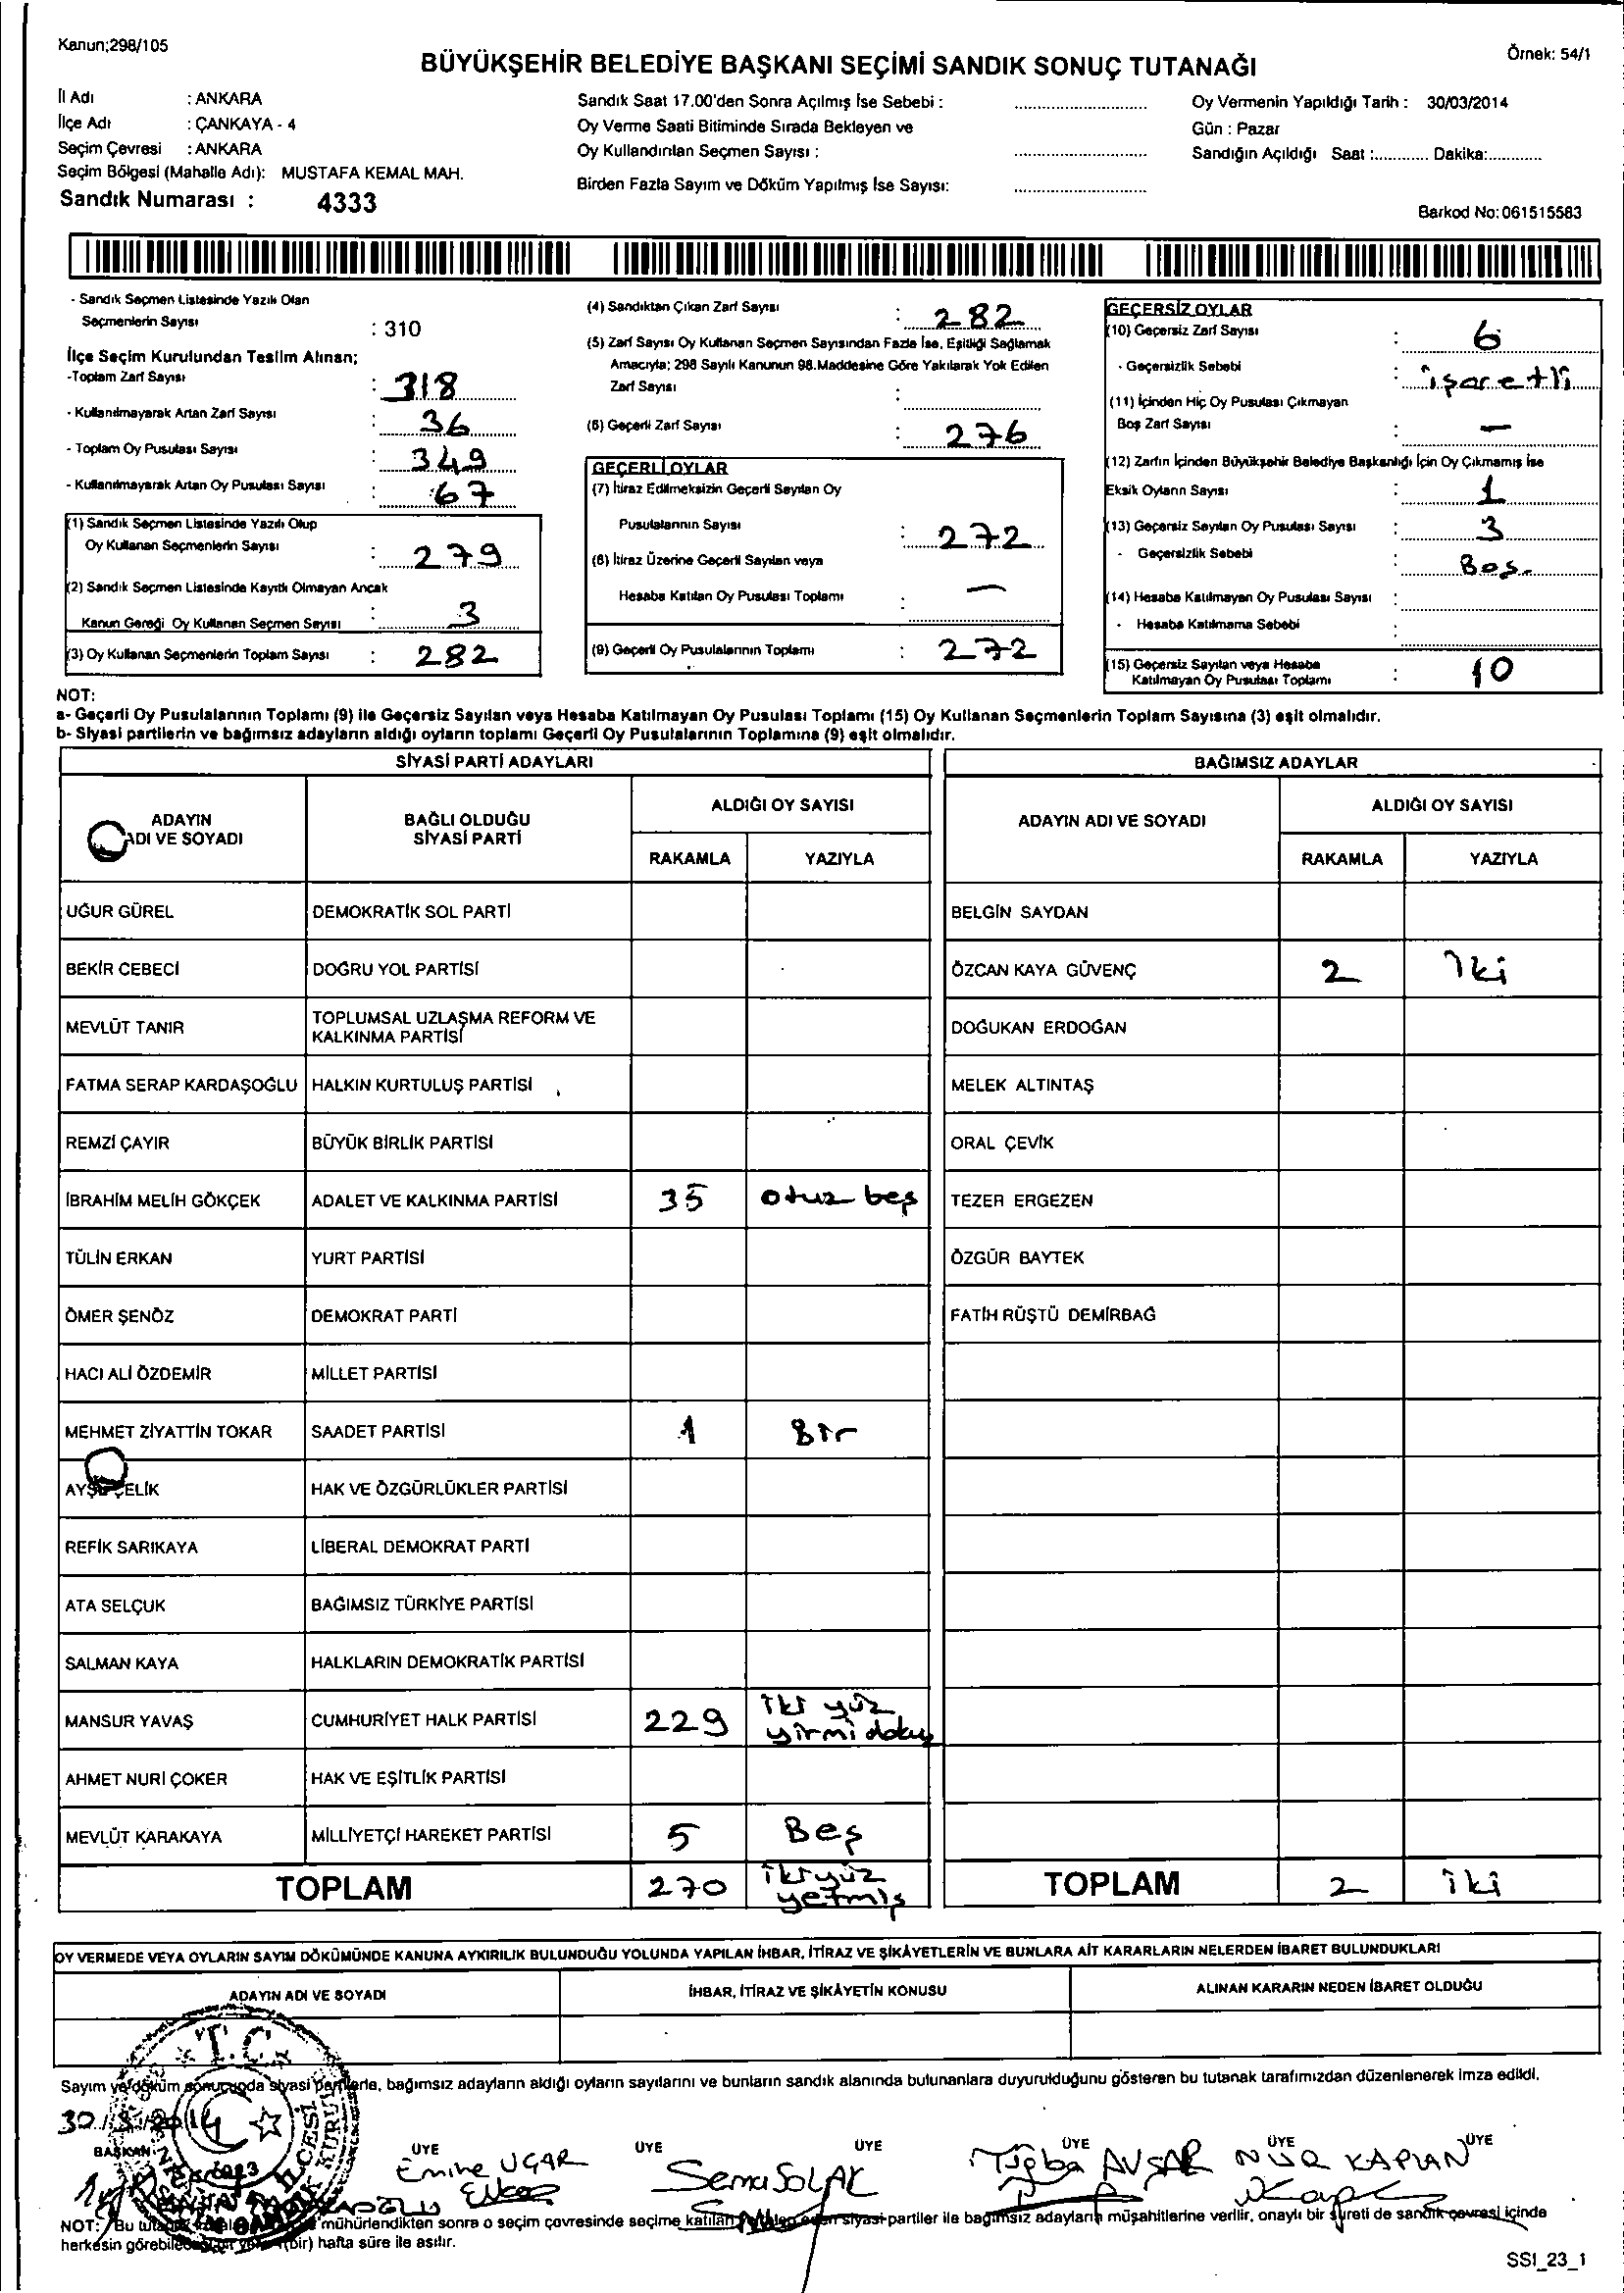 Kanun;298/105
Örnek: 54/1
BÜYÜKŞEHİR BELEDİYE BAŞKANI SEÇİMİ SANDIK SONUÇ TUTANAĞI
İl Adı : ANKARA
İlçe Adı : ÇANKAYA - 4
Seçim Çevresi : ANKARA
Seçim Bölgesi (Mahalle Adı): MUSTAFA KEMAL MAH.
Sandık Numarası : 4333
Sandık Saat 17.00'den Sonra Açılmış İse Sebebi :
Oy Verme Saati Bitiminde Sırada Bekleyen ve
Oy Kullandırılan Seçmen Sayısı :
Birden Fazla Sayım ve Döküm Yapılmış İse Sayısı:
Oy Vermenin Yapıldığı Tarih : 30/03/2014
Gün : Pazar
Sandığın Açıldığı Saat :............ Dakika:............
Barkod No:061515583
- Sandık Seçmen Listesinde Yazılı Olan
Seçmenlerin Sayısı : 310
İlçe Seçim Kurulundan Teslim Alınan;
-Toplam Zarf Sayısı : 318
- Kullanılmayarak Artan Zarf Sayısı : 36
- Toplam Oy Pusulası Sayısı : 349
- Kullanılmayarak Artan Oy Pusulası Sayısı : 67
(1) Sandık Seçmen Listesinde Yazılı Olup
Oy Kullanan Seçmenlerin Sayısı : 279
(2) Sandık Seçmen Listesinde Kayıtlı Olmayan Ancak
Kanun Gereği Oy Kullanan Seçmen Sayısı : 3
(3) Oy Kullanan Seçmenlerin Toplam Sayısı : 282
(4) Sandıktan Çıkan Zarf Sayısı : 282
(5) Zarf Sayısı Oy Kullanan Seçmen Sayısından Fazla İse, Eşitliği Sağlamak
Amacıyla; 298 Sayılı Kanunun 98.Maddesine Göre Yakılarak Yok Edilen
Zarf Sayısı :
(6) Geçerli Zarf Sayısı : 276
GEÇERLİ OYLAR
(7) İtiraz Edilmeksizin Geçerli Sayılan Oy
Pusulalarının Sayısı : 272
(8) İtiraz Üzerine Geçerli Sayılan veya
Hesaba Katılan Oy Pusulası Toplamı : —
(9) Geçerli Oy Pusulalarının Toplamı : 272
GEÇERSİZ OYLAR
(10) Geçersiz Zarf Sayısı : 6
- Geçersizlik Sebebi : işaretli
(11) İçinden Hiç Oy Pusulası Çıkmayan
Boş Zarf Sayısı : —
(12) Zarfın İçinden Büyükşehir Belediye Başkanlığı İçin Oy Çıkmamış İse
Eksik Oyların Sayısı : 1
(13) Geçersiz Sayılan Oy Pusulası Sayısı : 3
- Geçersizlik Sebebi : Boş.
(14) Hesaba Katılmayan Oy Pusulası Sayısı :
- Hesaba Katılmama Sebebi :
(15) Geçersiz Sayılan veya Hesaba
Katılmayan Oy Pusulası Toplamı : 10
NOT:
a- Geçerli Oy Pusulalarının Toplamı (9) ile Geçersiz Sayılan veya Hesaba Katılmayan Oy Pusulası Toplamı (15) Oy Kullanan Seçmenlerin Toplam Sayısına (3) eşit olmalıdır.
b- Siyasi partilerin ve bağımsız adayların aldığı oyların toplamı Geçerli Oy Pusulalarının Toplamına (9) eşit olmalıdır.
SİYASİ PARTİ ADAYLARI
BAĞIMSIZ ADAYLAR
ADAYIN
ADI VE SOYADI
BAĞLI OLDUĞU
SİYASİ PARTİ
ALDIĞI OY SAYISI
RAKAMLA YAZIYLA
ADAYIN ADI VE SOYADI
ALDIĞI OY SAYISI
RAKAMLA YAZIYLA
UĞUR GÜREL DEMOKRATİK SOL PARTİ BELGİN SAYDAN
BEKİR CEBECİ DOĞRU YOL PARTİSİ ÖZCAN KAYA GÜVENÇ 2 İki
MEVLÜT TANIR TOPLUMSAL UZLAŞMA REFORM VE
KALKINMA PARTİSİ DOĞUKAN ERDOĞAN
FATMA SERAP KARDAŞOĞLU HALKIN KURTULUŞ PARTİSİ MELEK ALTINTAŞ
REMZİ ÇAYIR BÜYÜK BİRLİK PARTİSİ ORAL ÇEVİK
İBRAHİM MELİH GÖKÇEK ADALET VE KALKINMA PARTİSİ 35 otuz beş TEZER ERGEZEN
TÜLİN ERKAN YURT PARTİSİ ÖZGÜR BAYTEK
ÖMER ŞENÖZ DEMOKRAT PARTİ FATİH RÜŞTÜ DEMİRBAĞ
HACI ALİ ÖZDEMİR MİLLET PARTİSİ
MEHMET ZİYATTİN TOKAR SAADET PARTİSİ 1 Bir
AYŞE ÇELİK HAK VE ÖZGÜRLÜKLER PARTİSİ
REFİK SARIKAYA LİBERAL DEMOKRAT PARTİ
ATA SELÇUK BAĞIMSIZ TÜRKİYE PARTİSİ
SALMAN KAYA HALKLARIN DEMOKRATİK PARTİSİ
MANSUR YAVAŞ CUMHURİYET HALK PARTİSİ 229 iki yüz
yirmi dokuz
AHMET NURİ ÇOKER HAK VE EŞİTLİK PARTİSİ
MEVLÜT KARAKAYA MİLLİYETÇİ HAREKET PARTİSİ 5 Beş
TOPLAM 270 ikiyüz
yetmiş
TOPLAM 2 iki
OY VERMEDE VEYA OYLARIN SAYIM DÖKÜMÜNDE KANUNA AYKIRILIK BULUNDUĞU YOLUNDA YAPILAN İHBAR, İTİRAZ VE ŞİKÂYETLERİN VE BUNLARA AİT KARARLARIN NELERDEN İBARET BULUNDUKLARI
ADAYIN ADI VE SOYADI İHBAR, İTİRAZ VE ŞİKÂYETİN KONUSU ALINAN KARARIN NEDEN İBARET OLDUĞU
T.C.
Sayım ve döküm sonucunda siyasi partilerle, bağımsız adayların aldığı oyların sayılarını ve bunların sandık alanında bulunanlara duyurulduğunu gösteren bu tutanak tarafımızdan düzenlenerek imza edildi.
30/3/2014
BAŞKAN ÜYE ÜYE ÜYE ÜYE ÜYE ÜYE
Emine UÇAR Sema SOLAK Tuğba AVŞAR NUR KAPLAN
NOT: Bu mühürlendikten sonra o seçim çevresinde seçime katılan siyasi partiler ile bağımsız adayların müşahitlerine verilir, onaylı bir sureti de sandık çevresi içinde
herkesin görebileceği bir (bir) hafta süre ile asılır.
SSI_23_1